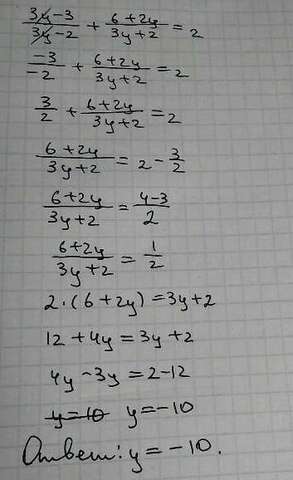 (3y-3)/(3y-2) + (6+2y)/(3y+2) = 2
(-3)/(-2) + (6+2y)/(3y+2) = 2
3/2 + (6+2y)/(3y+2) = 2
(6+2y)/(3y+2) = 2 - 3/2
(6+2y)/(3y+2) = (4-3)/2
(6+2y)/(3y+2) = 1/2
2·(6+2y) = 3y+2
12+4y = 3y+2
4y-3y = 2-12
y=10 y=-10
Ответ: y=-10.